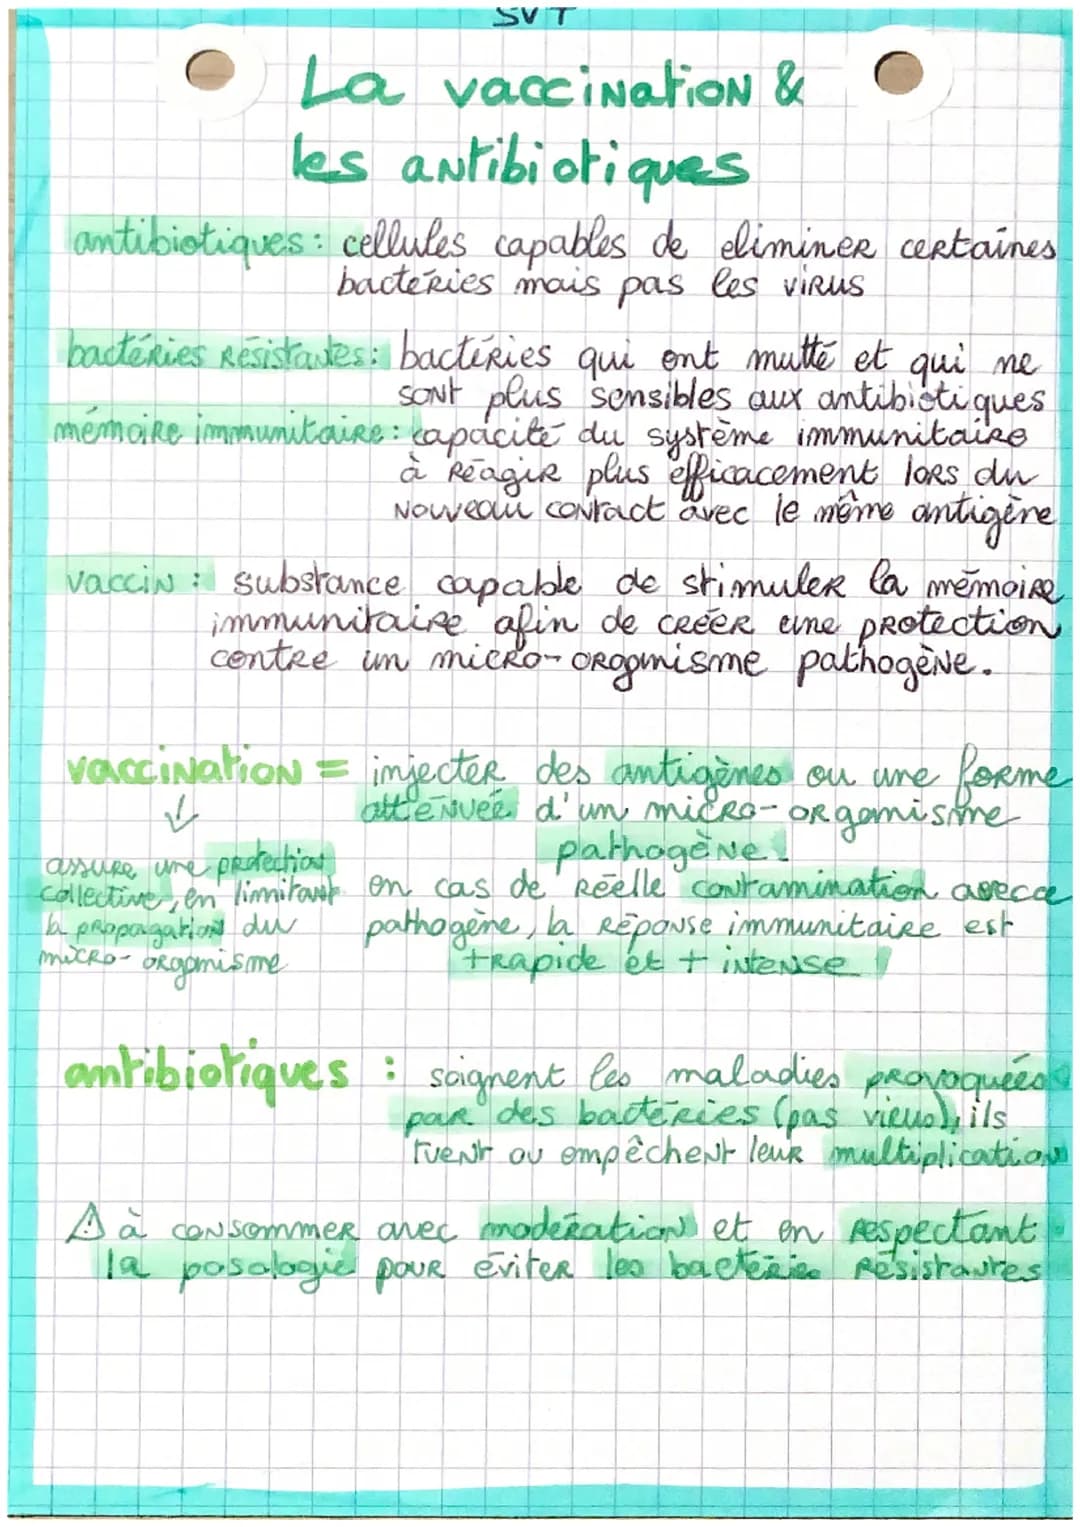 SVT
La vaccination &
les antibiotiques
antibiotiques : cellules capables de eliminer certaines
bactéries mais pas les virus
bactéries résistantes : bactéries qui ont mutté et qui ne
sont plus sensibles aux antibiotiques
mémoire immunitaire : capacité du système immunitaire
à réagir plus efficacement lors du
nouveau contact avec le même antigène
vaccin : substance capable de stimuler la mémoire
immunitaire afin de créer une protection
contre un micro-organisme pathogène.
vaccination = injecter des antigènes ou une forme
atténuée d'un micro-organisme
pathogène.
↓
assure une protection
collective, en limitant
la propagation du
micro-organisme
en cas de réelle contamination avec ce
pathogène, la réponse immunitaire est
+ rapide et + intense
antibiotiques : soignent les maladies provoquées
par des bactéries (pas virus), ils
tuent ou empêchent leur multiplication
⚠ à consommer avec modération et en respectant
la posologie pour éviter les bactéries résistantes